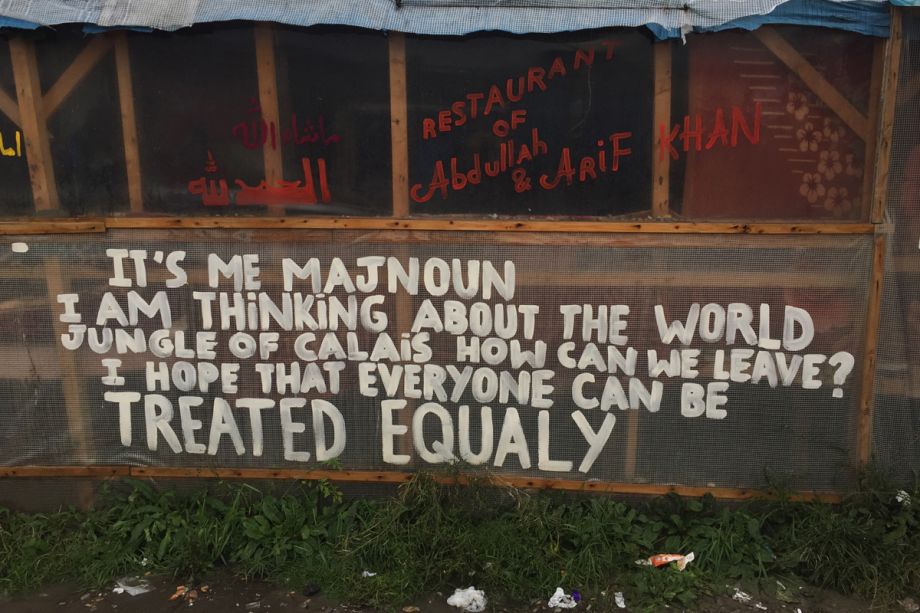 ما شاء الله
الحمدلله
RESTAURANT
OF
Abdullah
& ARIF KHAN
IT'S ME MAJNOUN
I AM THINKING ABOUT THE WORLD
JUNGLE OF CALAIS HOW CAN WE LEAVE?
I HOPE THAT EVERYONE CAN BE
TREATED EQUALY